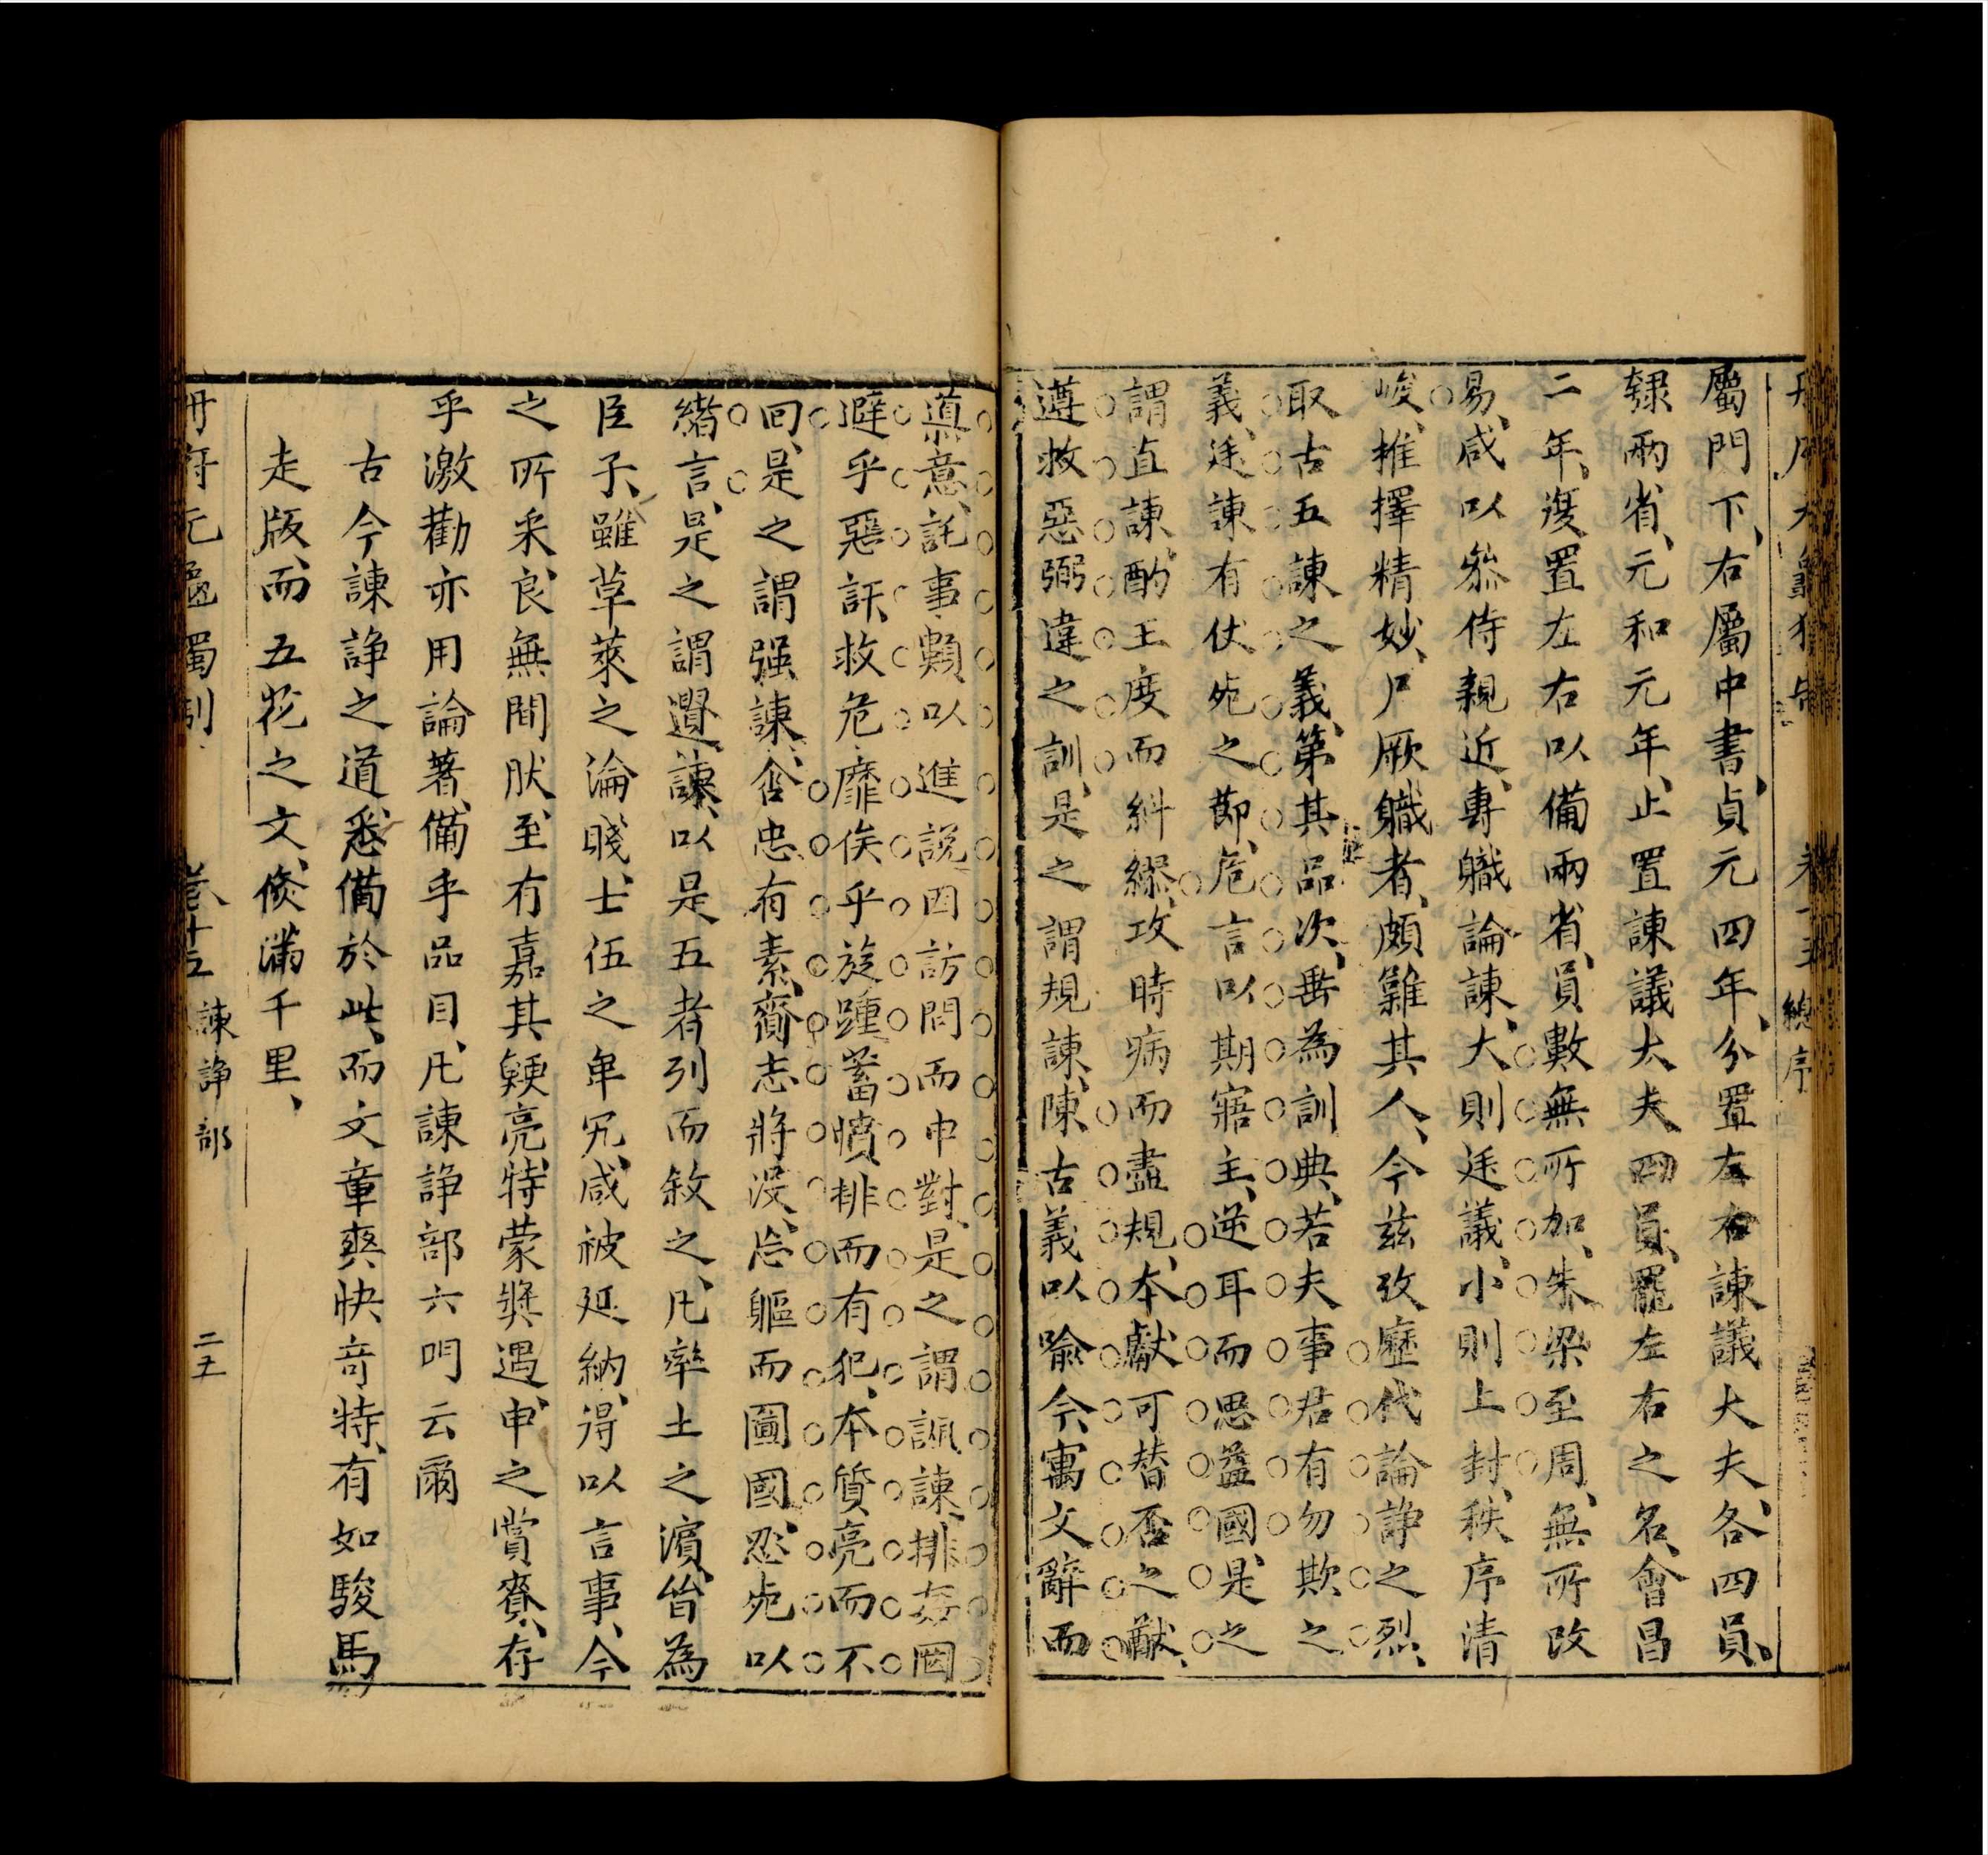 總序
屬門下、右屬中書、貞元四年、分置左右諫議大夫、各四員、
隸兩省、元和元年、止置諫議大夫四員、罷左右之名、會昌
二年、復置左右以備兩省、員數無所加、朱梁至周、無所改
易、咸以叅侍親近、專職論諫、大則廷議、小則上封、秩序清
峻、推擇精妙、尸厥職者、頗難其人、今茲攷歷代論諍之烈、
取古五諫之義、第其品次、垂為訓典、若夫事君有勿欺之
義、廷諫有伏死之節、危言以期寤主、逆耳而思益國、是之
謂直諫、酌王度而糾繆、攻時病而盡規、本獻可替否之猷、
遵救惡弼違之訓、是之謂規諫、陳古義以喻今、寓文辭而
寘意、託事類以進說、因訪問而中對、是之謂諷諫、排姦罔
避乎惡訐、救危靡俟乎旋踵、蓄憤排而有犯、本質亮而不
回、是之謂强諫、含忠有素、齎志將沒、忘軀而圖國、忍死以
緒言、是之謂遺諫、以是五者列而敘之、凡率土之濱、皆為
臣子、雖草萊之淪賤、士伍之卑冗、咸被延納、得以言事、今
之所采、良無間肰、至有嘉其鯁亮、特蒙獎遇、申之賞賚、存
乎激勸、亦用論著、備乎品目、凡諫諍部六門云爾
古今諫諍之道、悉備於此、而文章爽快奇特、有如駿馬
走版、而五花之文、倏滿千里、
冊府元龜獨制 卷十五 諫諍部 二五